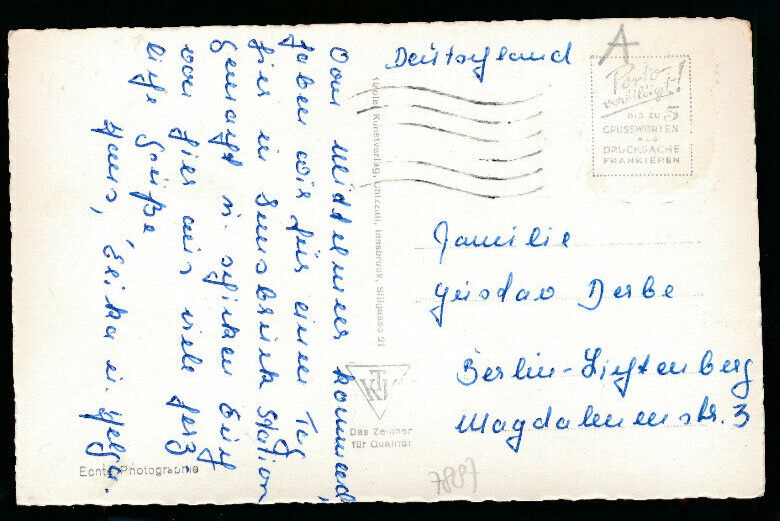 Vom Mittelmeer kommend,
haben wir für einen Tag
hier in Innsbruck Station
gemacht u. schicken Euch
von hier aus viele herz-
liche Grüße
Hans, Erika u. Helga.
Deutschland
A
Porto-
verbilligt!
BIS ZU 5
GRUSSWORTEN
ALS
DRUCKSACHE
FRANKIEREN
Familie
Gustav Derbe
Berlin-Lichtenberg
Magdalenenstr. 3
Kunstverlag, Chizzali, Innsbruck, Sillgasse 21
KTI
Das Zeichen
für Qualität
Echte Photographie